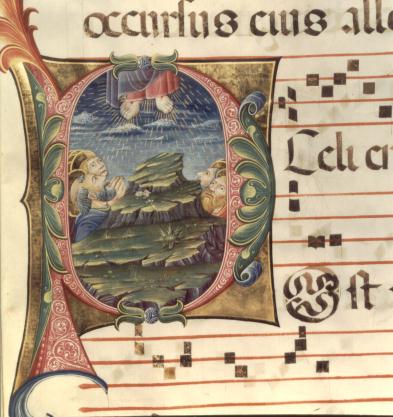 occursus eius alle
Celi en
Est